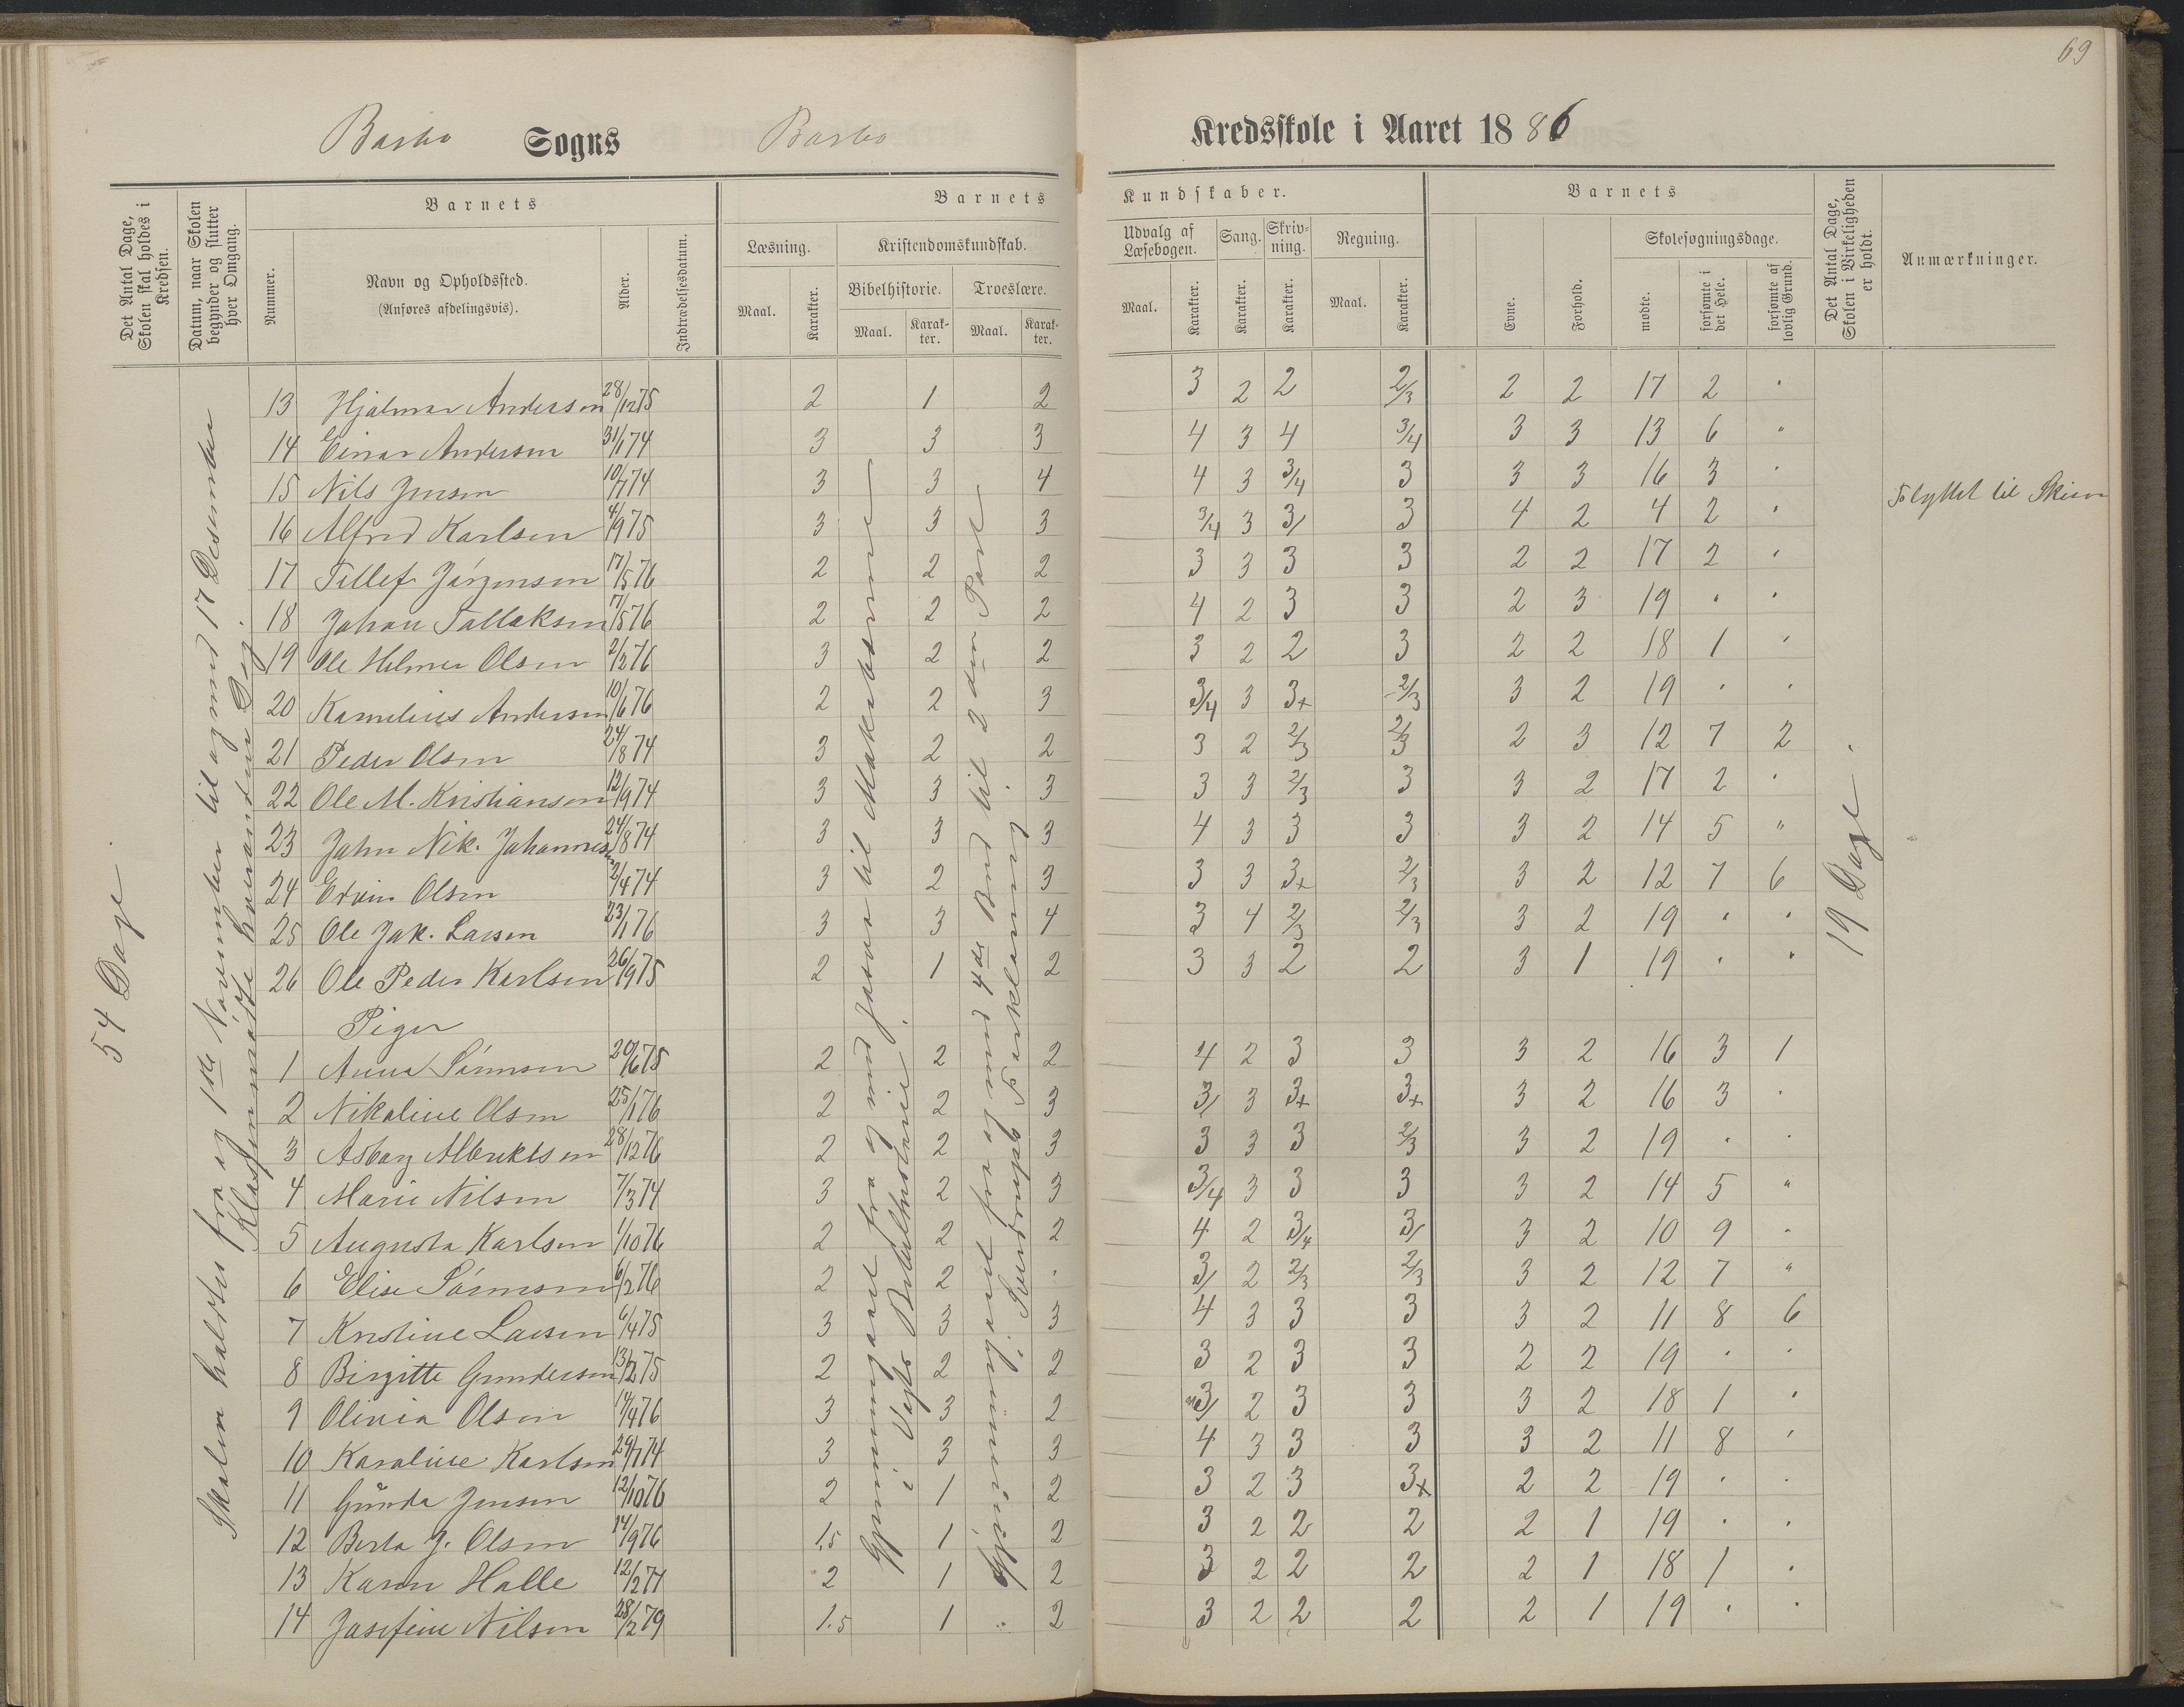 69
Barbo Sogns Barbo Kredsskole i Aaret 1886
Det Antal Dage, Skolen skal holdes i Kredsen.
Datum, naar Skolen begynder og slutter hver Omgang.
Barnets
Nummer.
Navn og Opholdssted.
(Anføres afdelingsvis).
Alder.
Indtrædelsesdatum.
Barnets Kundskaber.
Læsning.
Maal. Karakter.
Kristendomskundskab.
Bibelhistorie. Troeslære.
Maal. Karakter. Maal. Karakter.
Udvalg af Læsebogen. Sang. Skrivning. Regning.
Maal. Karakter. Karakter. Karakter. Maal. Karakter.
Barnets
Evne. Forhold.
Skolesøgningsdage.
mødte. forsømte i det Hele. forsømte af lovlig Grund.
Det Antal Dage, Skolen i Virkeligheden er holdt.
Anmærkninger.
54 Dage
Skolen holdtes fra og 1ste November til og med 17 Desember
Klassen mødte hveranden Dag.
Gjennemgaaet fra og med Josva til Makabæerne
i Vogts Bibelhistorie.
Gjennemgaaet fra og med 4de Bud til 2den Part
i Sverdrups Forklaring
19 Dage.
13 Hjalmar Andersen 28/12 75 2 1 2 3 2 2 2/3 2 2 17 2 .
14 Einar Andersen 31/1 74 3 3 3 4 3 4 3/4 3 3 13 6 "
15 Nils Jensen 10/7 74 3 3 4 4 3 3/4 3 3 3 16 3 .
16 Alfred Karlsen 4/9 75 3 3 3 3/4 3 3/ 3 4 2 4 2 . Flyttet til Skien
17 Tellef Jörgensen 17/5 76 2 2 2 3 3 3 3 2 2 17 2 .
18 Johan Tallaksen 17/5 76 2 2 2 4 2 3 3 2 3 19 . .
19 Ole Hilmer Olsen 2/2 76 3 2 2 3 2 2 3 2 2 18 1 .
20 Kornelius Andersen 10/6 76 2 2 3 3/4 3 3+ 2/3 3 2 19 . .
21 Peder Olsen 24/8 74 3 2 2 3 2 2/3 2/3 2 3 12 7 2
22 Ole M. Kristiansen 12/9 74 3 3 3 3 3 2/3 3 3 2 17 2 .
23 John Nik. Johannesen 24/8 74 3 3 3 4 3 3 3 3 2 14 5 "
24 Edvin Olsen 2/4 74 3 2 3 3 3 3+ 2/3 3 2 12 7 6
25 Ole Jak. Larsen 23/1 76 3 3 4 3 4 2/3 2/3 3 2 19 . .
26 Ole Peder Karlsen 26/9 75 2 1 2 3 3 2 2 3 1 19 . .
Piger
1 Anna Sörensen 20/6 75 2 2 2 4 2 3 3 3 2 16 3 1
2 Nikoline Olsen 25/1 76 2 2 3 3/ 3 3+ 3+ 3 2 16 3 .
3 Asborg Albriktsen 28/12 76 2 2 3 3 3 3 2/3 3 2 19 . .
4 Marie Nilsen 7/3 74 3 2 3 3/4 3 3 3 3 2 14 5 "
5 Augusta Karlsen 1/10 76 2 2 2 4 2 3/4 3/ 3 2 10 9 .
6 Elise Sörensen 6/2 76 2 2 . 3/ 2 2/3 2/3 3 2 12 7 "
7 Kristine Larsen 6/4 75 3 3 3 4 3 3 3 3 2 11 8 6
8 Birgitte Gundersen 13/2 75 2 2 2 3 2 3 3 2 2 19 . .
9 Olivia Olsen 4/76 3 3 2 3/ 2 3 3 3 2 18 1 .
10 Karoline Karlsen 29/7 74 3 3 3 4 3 3 3 3 2 11 8 .
11 Gunda Jensen 12/10 76 2 1 2 3 2 3 3+ 2 2 19 . .
12 Berta J. Olsen 14/9 76 1.5 1 2 3 2 2 2 2 1 19 . .
13 Karen Halle 12/2 77 2 1 2 3 2 2 2 2 1 18 1 .
14 Josefine Nilsen 28/2 79 1.5 1 2 3 2 2 2 2 1 19 . .